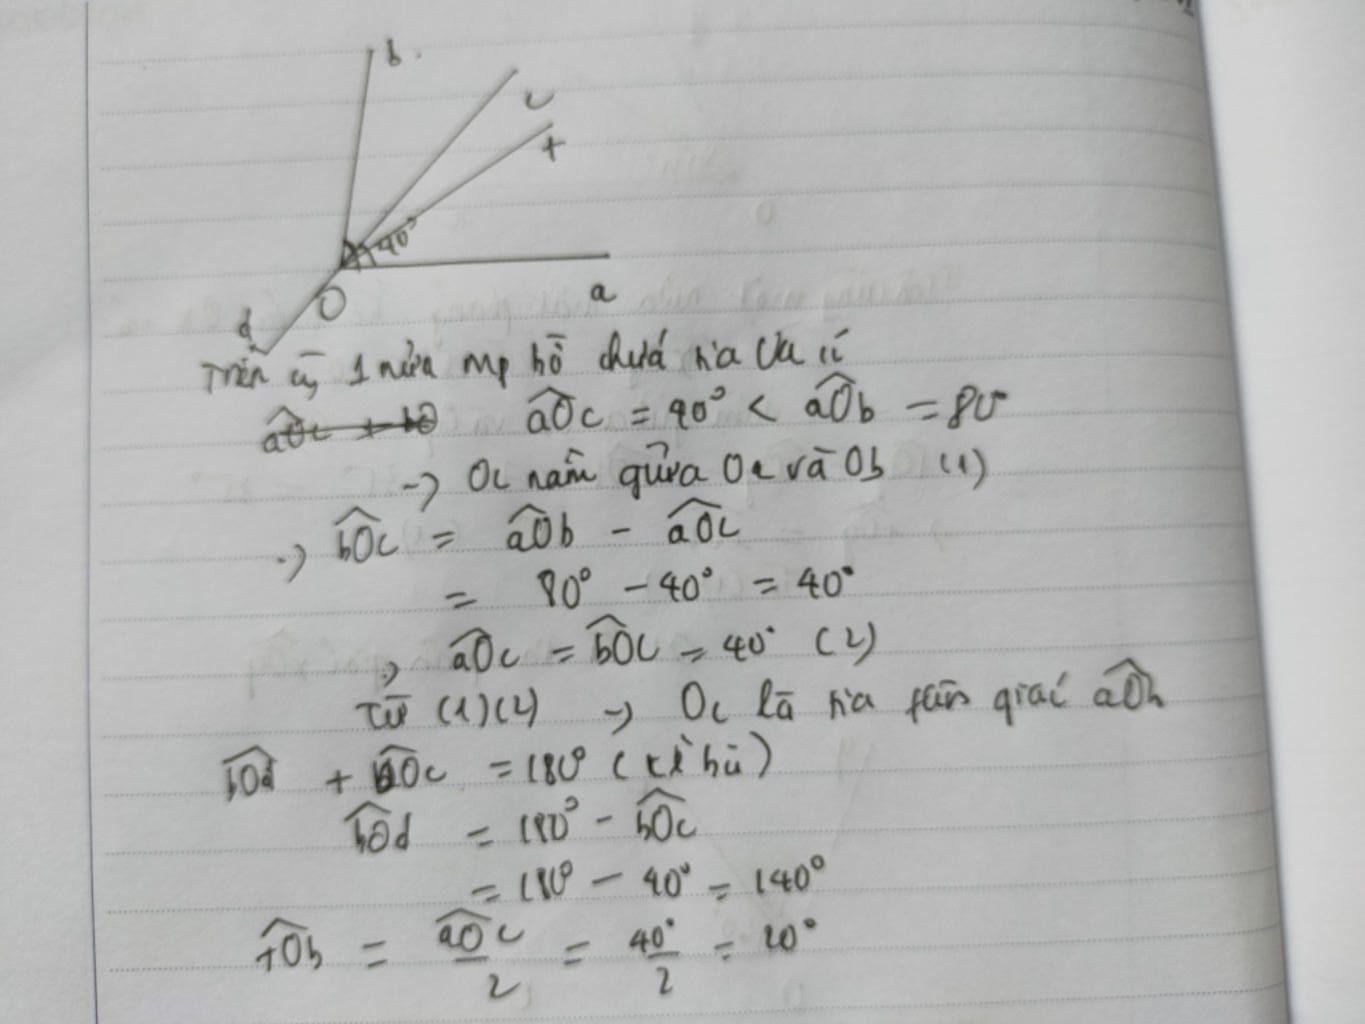 b
c
t
40°
a
O
d
Trên cg 1 nửa mp bờ chứa tia Oa có
aOc + bO aÔc = 40° < aÔb = 80°
-> Oc nằm giữa Oa và Ob (1)
-> bÔc = aÔb - aÔc
= 80° - 40° = 40°
-> aÔc = bÔc = 40° (2)
Từ (1)(2) -> Oc là tia fân giác aÔb
bÔd + bÔc = 180° (kề bù)
bÔd = 180° - bÔc
= 180° - 40° = 140°
tÔb = aÔc/2 = 40°/2 = 20°